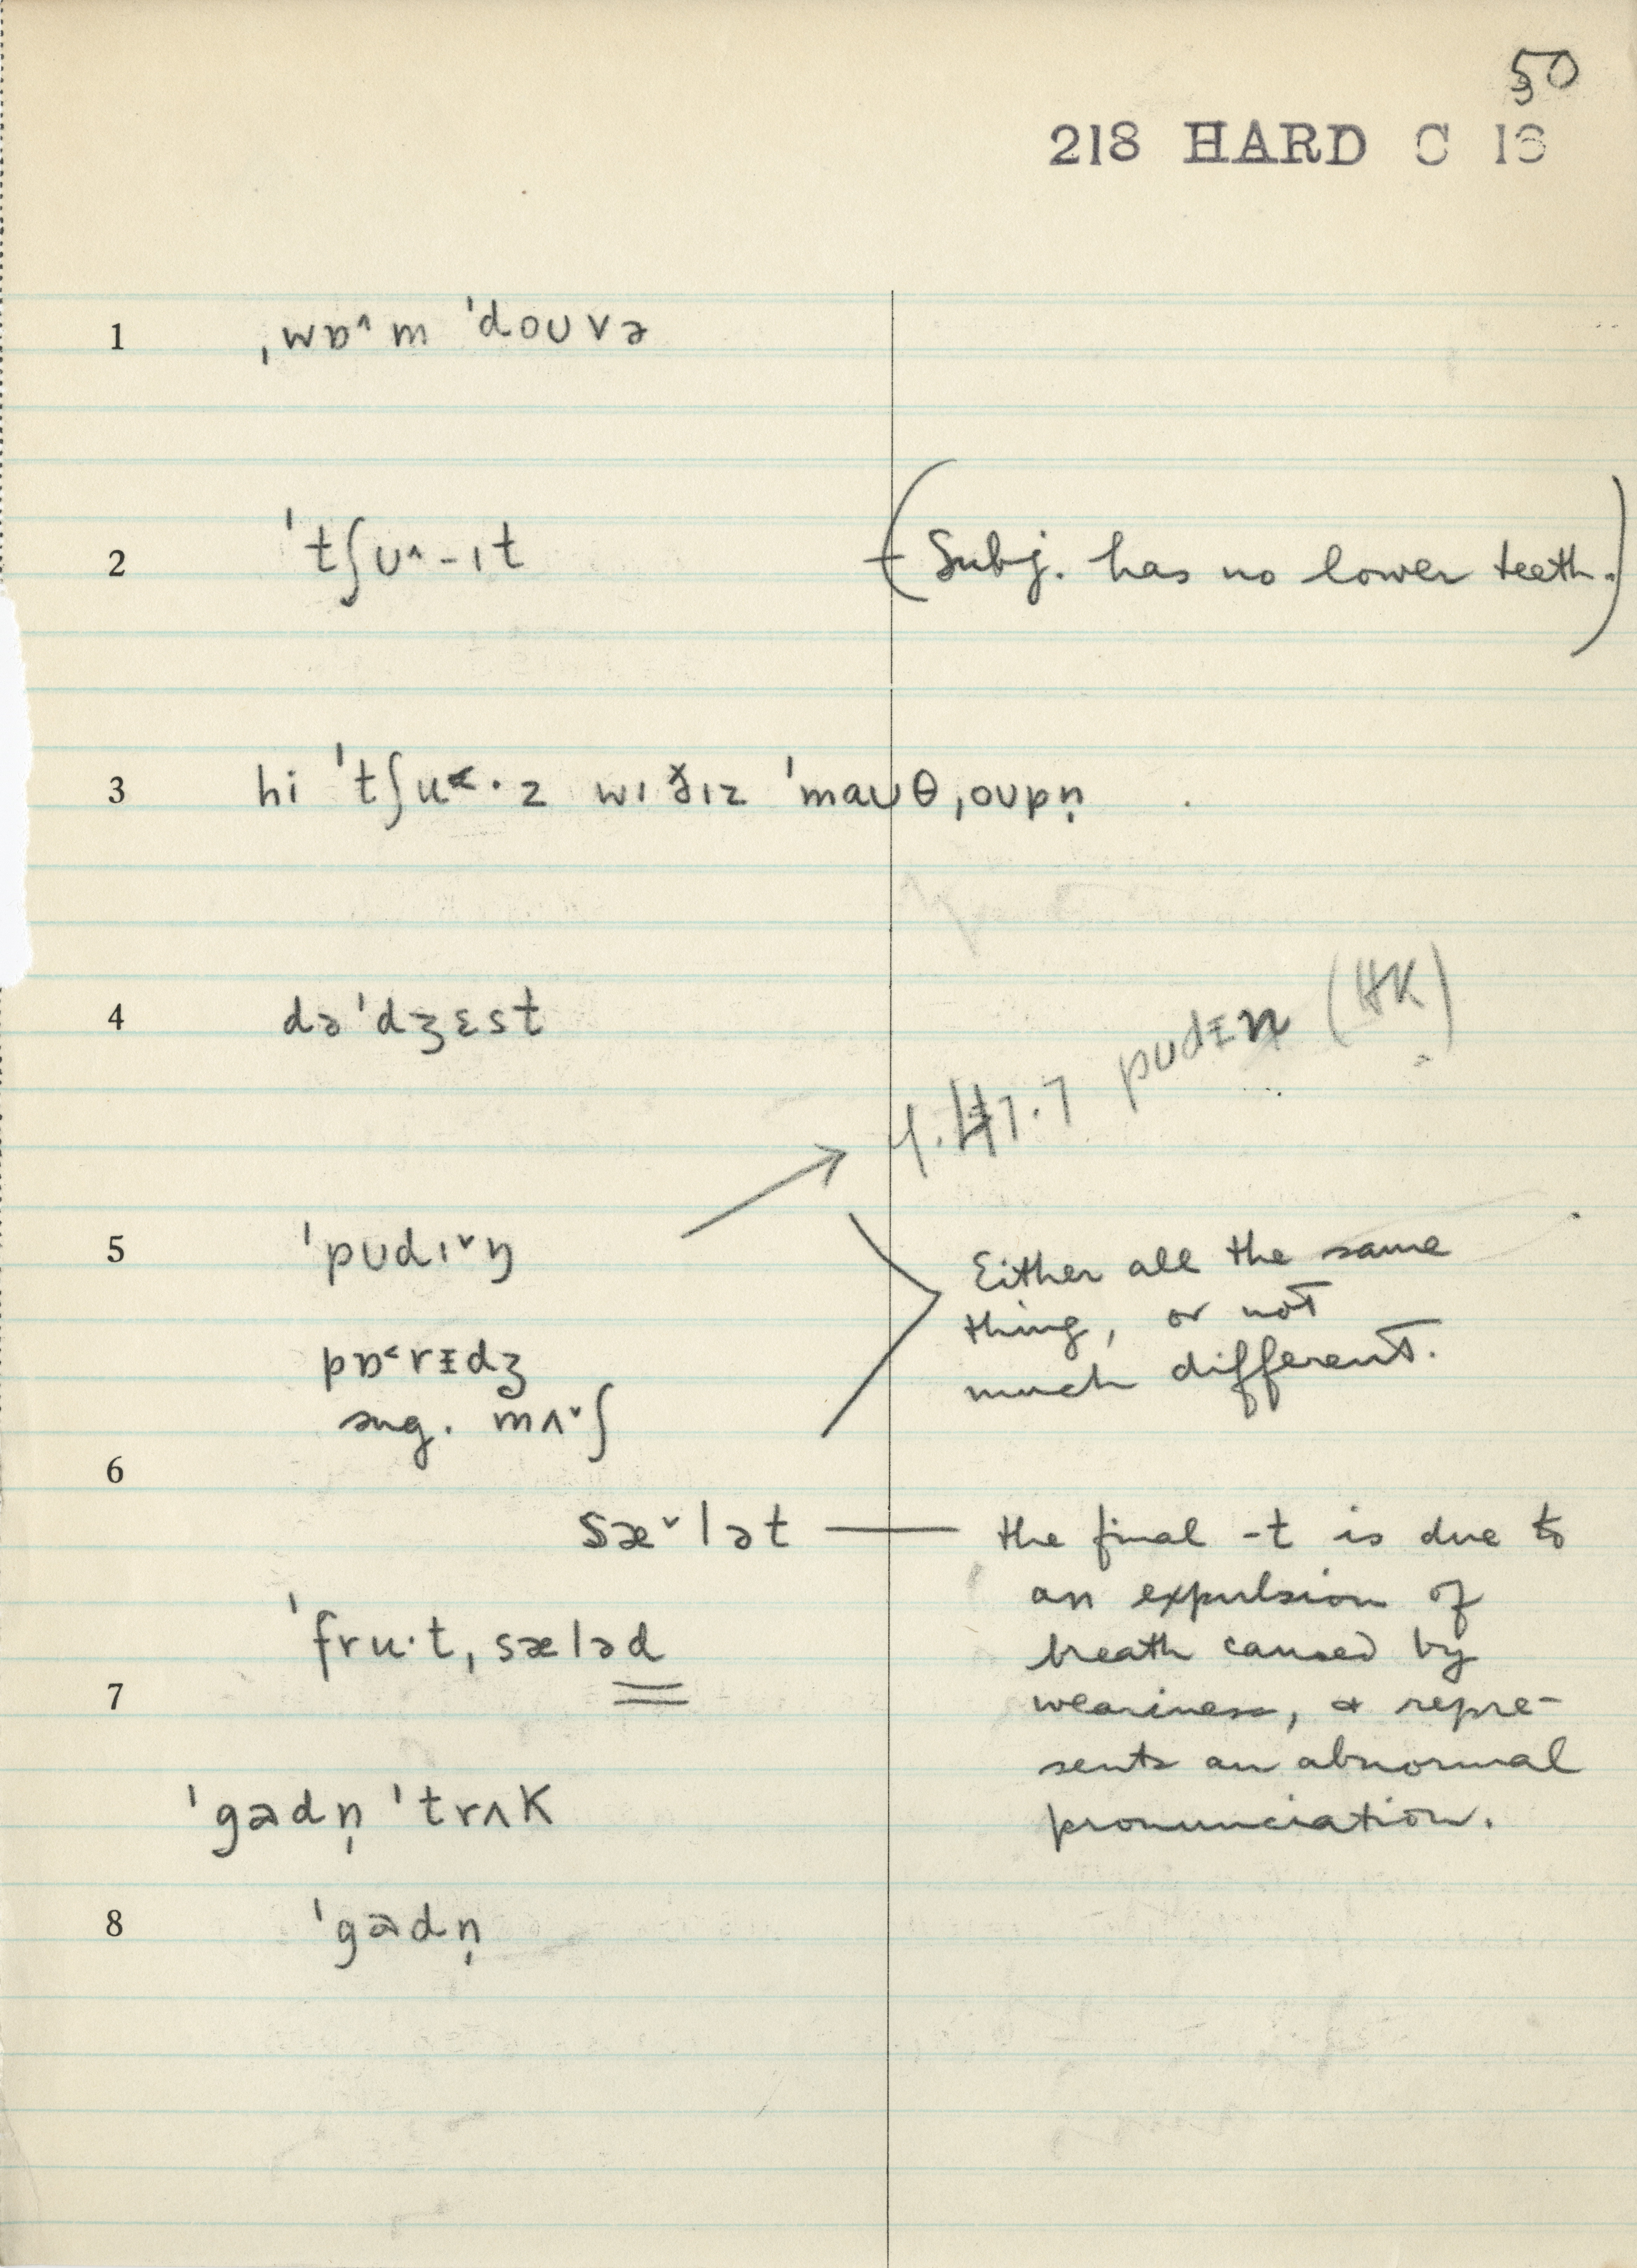 50
218 HARD C 16
1 ˌwɒ˄m ˈdoʊvə
2 ˈtʃʊ˄-ɪt (Subj. has no lower teeth.)
3 hi ˈtʃu˂·z wɪ ð̆ɪz ˈmaʊθˌoʊpn̩
4 də ˈdʒɛst
4.47.7 pudᵻn (HK)
5 ˈpʊdɪ˅ŋ
Either all the same
thing, or not
much different.
pɒ˂rᵻdʒ
sug. mʌ˅ʃ
6
sæ˅lət — the final -t is due to
an expulsion of
breath caused by
weariness, & repre-
sents an abnormal
pronunciation.
ˈfru·tˌsæləd
7
ˈgɜdn̩ ˈtrʌk
8 ˈgɜdn̩